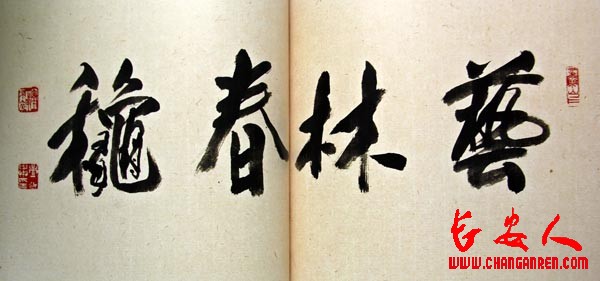 藝林春龝
长安人
WWW.CHANGANREN.COM